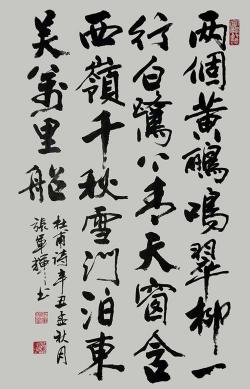 两個黄鸝鳴翠柳一
行白鷺上青天窗含
西嶺千秋雪门泊東
吴萬里船
杜甫诗辛丑孟秋月
張軍輝书